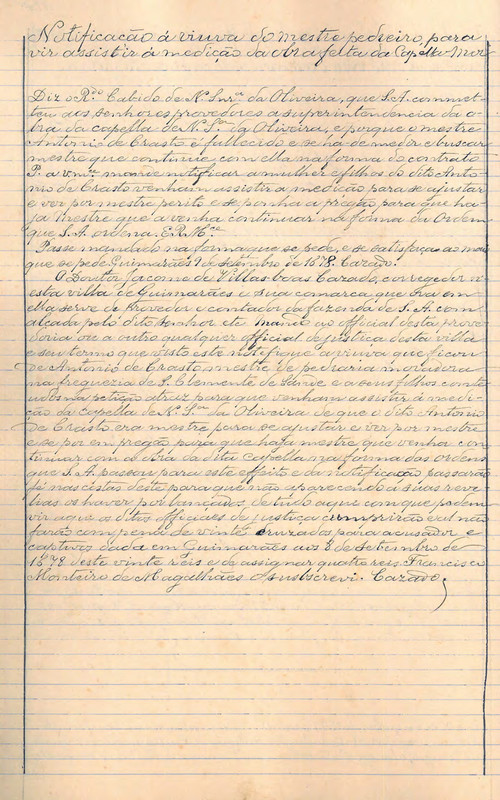 Notificação á viuva do mestre pedreiro, para
vir assistir á medição da obra feita da Capella-Mór
Diz o R.do Cabido de N.ª Snr.ª da Oliveira, que S.A. commet-
teu aos senhores provedores a superintendencia da o-
bra da capella de N.ª S.ra da Oliveira, e porque o mestre
Antonio de Crasto é fallecido e se ha de medir e buscar
mestre que continue com ella na forma do contrato
P. a v.mce mande notificar a mulher e filhos do dito Anto-
nio de Crasto venham assistir a medição para se ajustar
e ver por mestre perito e se ponha a pregão para que ha-
ja mestre que a venha continuar na forma da Ordem
que S.A. ordena, E.R.M.ce
Passe mandado na forma que se pede, e se satisfaça ao mais
que se pede. Guimarães 1 de setembro de 1678. Cazado.
O Doutor Jacome de Villas-boas Cazado, corregedor n'
esta villa de Guimarães e sua comarca que ora em
ella serve de Provedor e contador da fazenda de S.A. com
alçada pelo dito senhor etc. Mando ao official desta prove-
doria ou a outro qualquer official de justiça desta villa
e seu termo que visto este notifique a viuva que ficou
de Antonio de Crasto mestre de pedraria moradora
na freguezia de S. Clemente de Sande e a seus filhos conteu-
dos na petição atraz para que venham assistir á medi-
ção da capella de N.ª S.ra da Oliveira de que o dito Antonio
de Crasto era mestre para se ajustar e ver por mestre
e se por em pregão para que haja mestre que venha con-
tinuar com a obra da dita capella na forma das ordens
que S.A. passou para este effeito e da notificação passarão
fé nas costas deste para que não aparecendo á suas reve-
lias os haver por lançados de tudo aque com que podem
vir aque os ditos officiaes de justiça cumprirão e al não
farão com pena de vinte cruzados para acusador e
captivos dada em Guimarães aos 2 de Setembro de
1678 deste vinte réis e de assignar quatro reis. Francisco
Monteiro de Magalhães o subscrevi. Cazado,